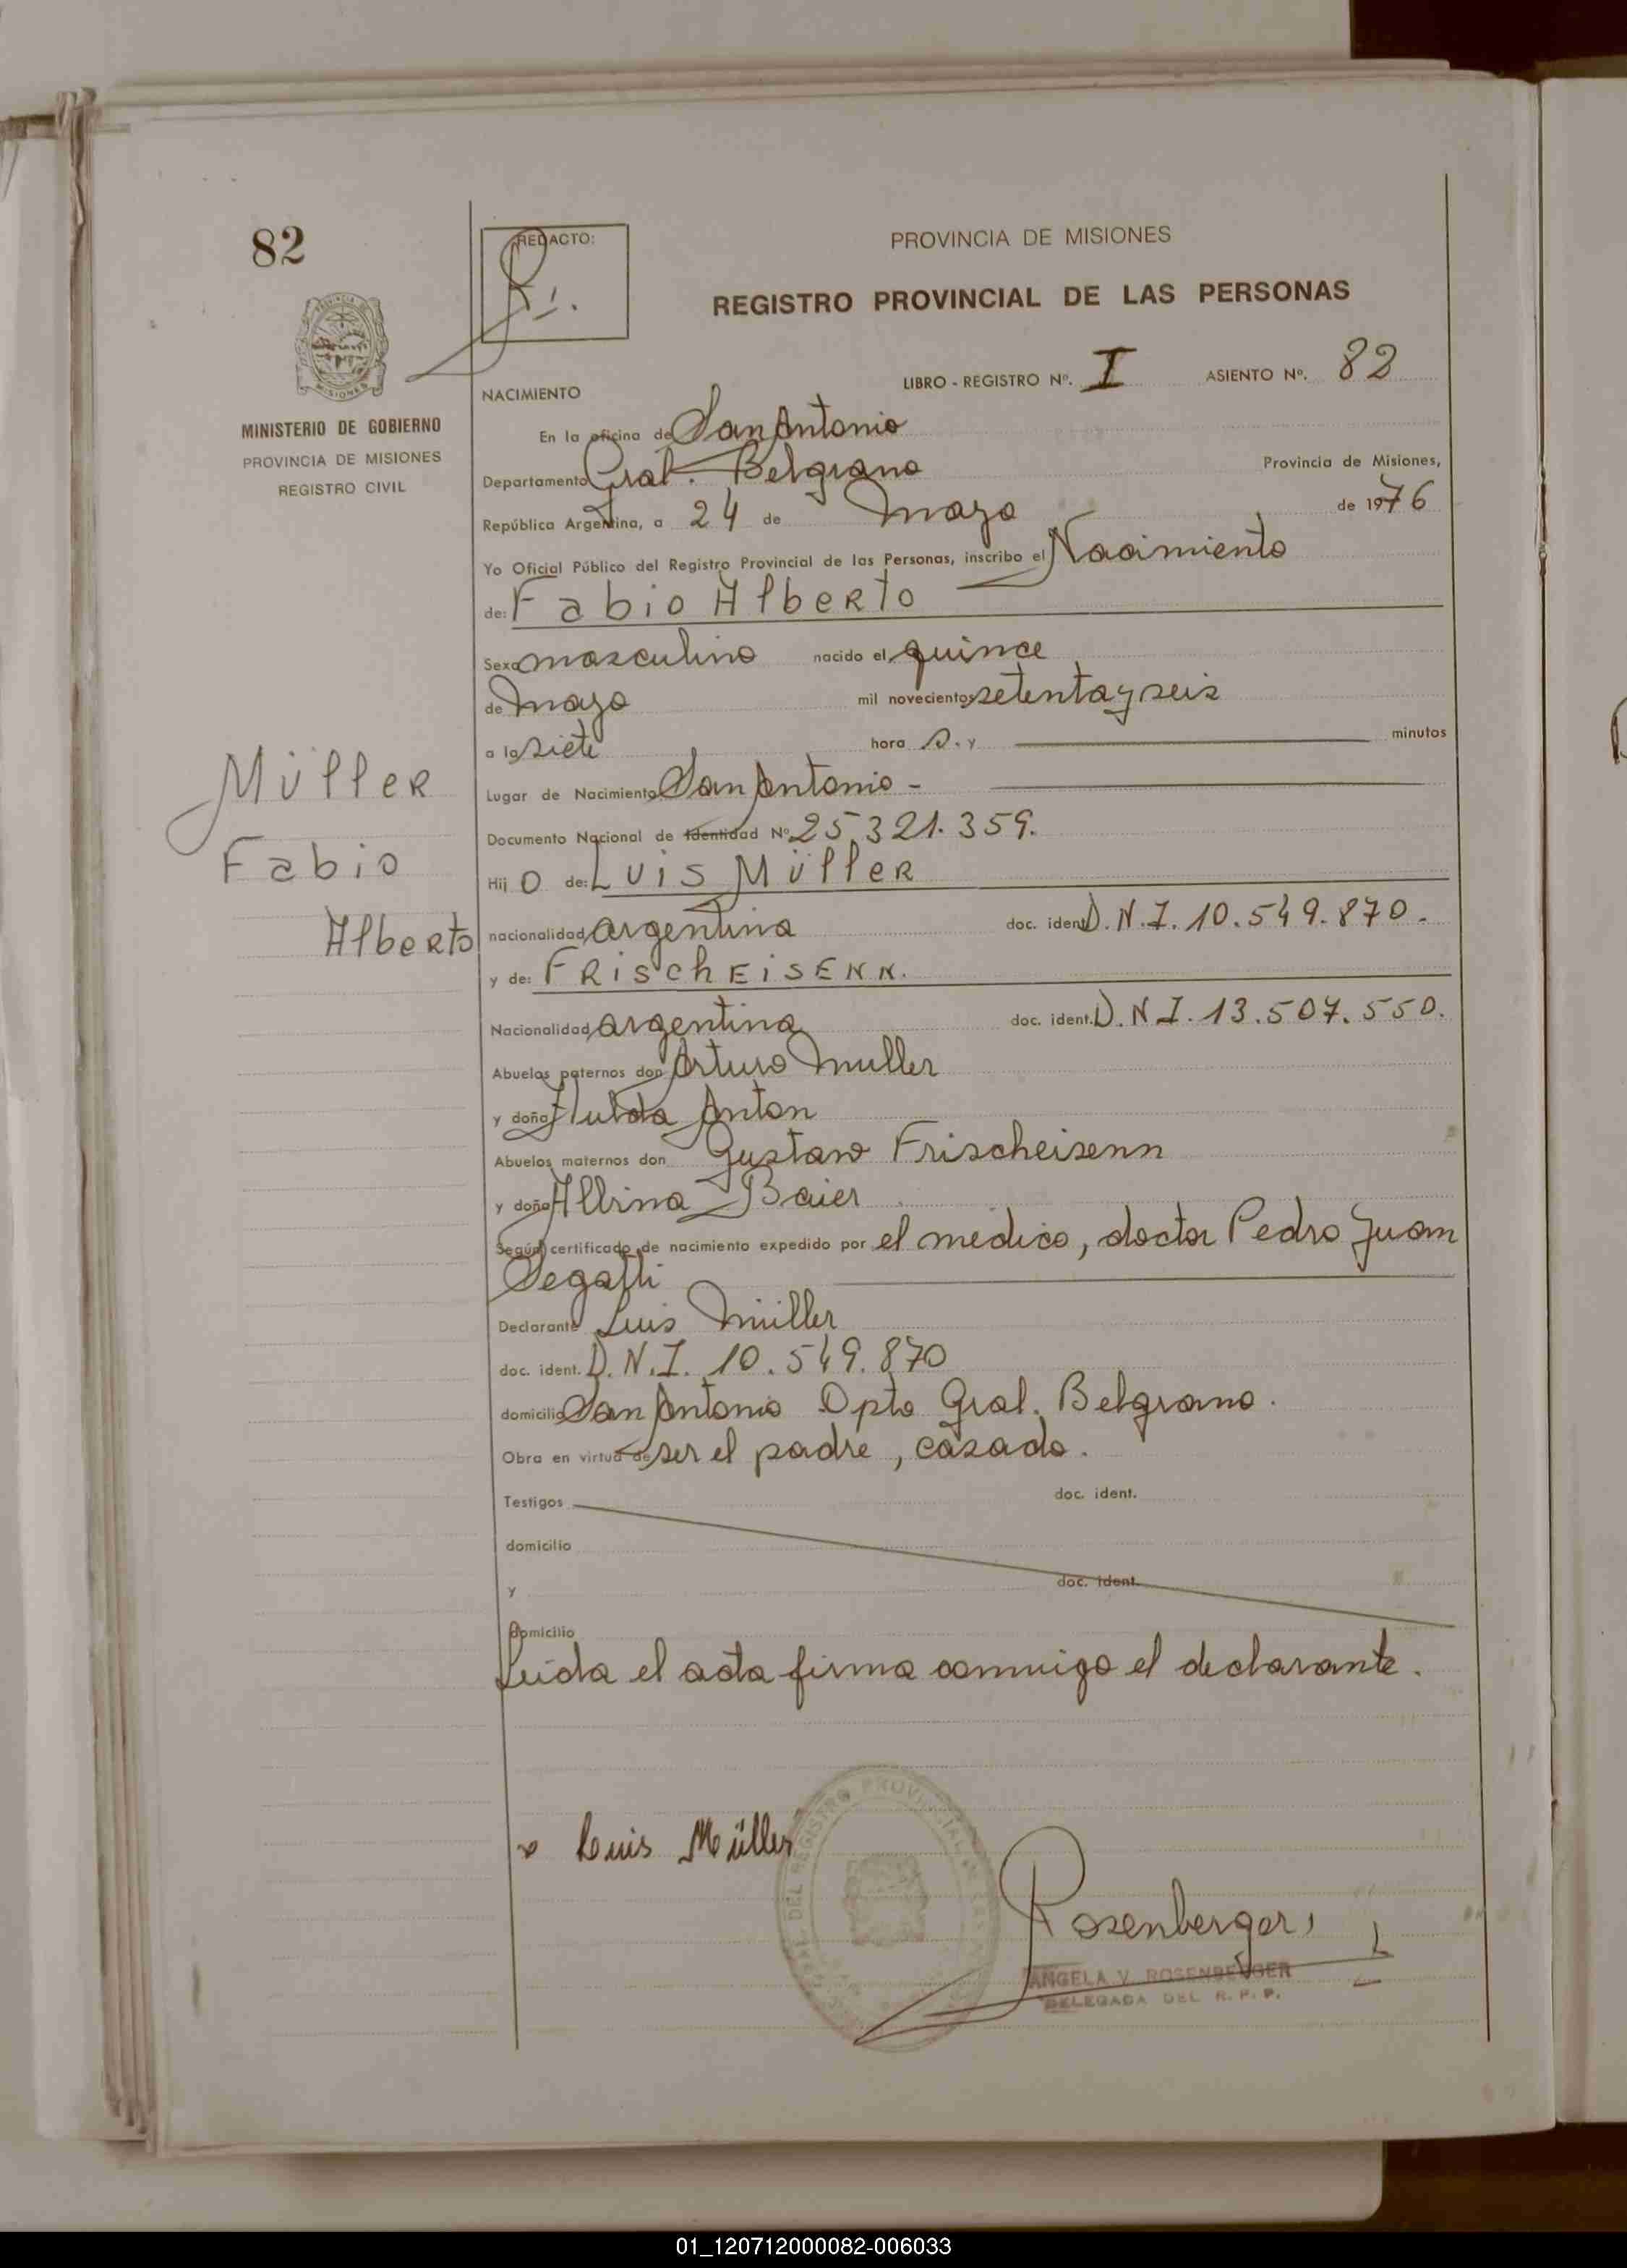 82
REDACTO:
PROVINCIA DE MISIONES
REGISTRO PROVINCIAL DE LAS PERSONAS
LIBRO - REGISTRO Nº. I ASIENTO Nº. 82
MISIONES
MINISTERIO DE GOBIERNO
PROVINCIA DE MISIONES
REGISTRO CIVIL
NACIMIENTO
En la oficina de San Antonio
Departamento Gral. Belgrano Provincia de Misiones,
República Argentina, a 24 de Mayo de 1976
Yo Oficial Público del Registro Provincial de las Personas, inscribo el Nacimiento
de: Fabio Alberto
Sexo masculino nacido el quince
de mayo mil novecientos setenta y seis
a la siete hora s. y minutos
Müller
Fabio
Alberto
Lugar de Nacimiento San Antonio -
Documento Nacional de Identidad Nº 25.321.359.
Hij o de: Luis Müller
nacionalidad argentina doc. ident. D.N.I. 10.549.870.
y de: FRischEiSENN.
Nacionalidad argentina doc. ident. D.N.I. 13.507.550.
Abuelos paternos don Arturo Muller
y doña Hulda Anton
Abuelos maternos don Gustavo Frischeisenn
y doña Albina Baier
Según certificado de nacimiento expedido por el medico, doctor Pedro Juan
Declarante Luis Müller
doc. ident. D.N.I. 10.549.870
domicilio San Antonio Dpto Gral. Belgrano.
Obra en virtud de ser el padre, casado.
Testigos doc. ident.
domicilio
y doc. ident.
domicilio
Leida el acta firma conmigo el declarante.
Luis Müller
Rosenberger
ANGELA V. ROSENBERGER
DELEGADA DEL R. P. P.
01_120712000082-006033